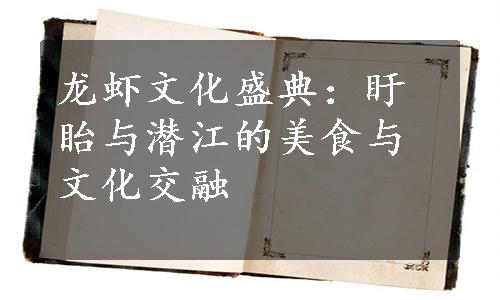 龙虾文化盛典：盱
眙与潜江的美食与
文化交融